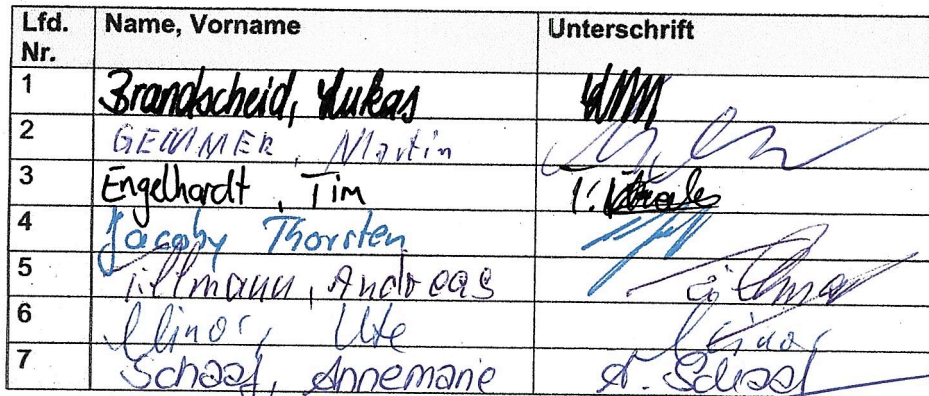 Lfd. Nr. Name, Vorname Unterschrift
1 Brandscheid, Lukas
2 GEMMER, Martin
3 Engelhardt, Tim
4 Jacoby Thorsten
5 Tillmann, Andreas
6 Ute
7 Schaaf, Annemarie A. Schaaf